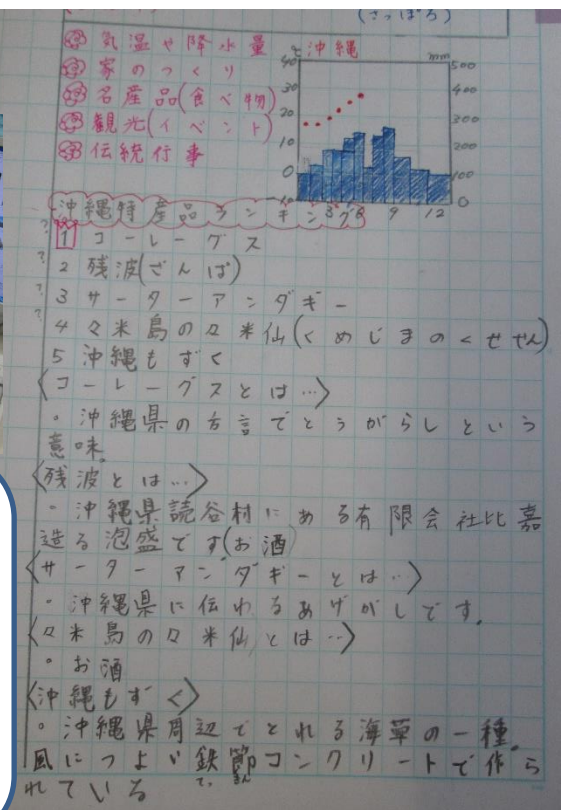 (さっぽろ)
気温や降水量
家のつくり
名産品(食べ物)
観光(イベント)
伝統行事
℃ 沖縄 mm
40 30 20 10 0 -10
500 400 300 200 100 0
3 6 9 12
沖縄特産品ランキング
1 コーレーグス
2 残波(ざんぱ)
3 サーターアンダギー
4 久米島の久米仙(くめじまのくせせん)
5 沖縄もずく
〈コーレーグスとは…〉
・沖縄県の方言でとうがらしという
意味。
〈残波とは…〉
・沖縄県読谷村にある有限会社比嘉
造る泡盛です(お酒)
〈サーターアンダギーとは…〉
・沖縄県に伝わるあげがしです。
〈久米島の久米仙とは…〉
・お酒
〈沖縄もずく〉
・沖縄県周辺でとれる海草の一種。
風につよい鉄節コンクリートで作ら
れている